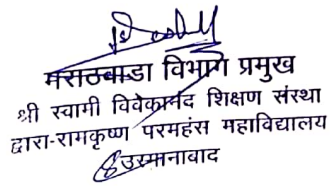 मराठवाडा विभाग प्रमुख
श्री स्वामी विवेकानंद शिक्षण संस्था
द्वारा-रामकृष्ण परमहंस महाविद्यालय
उस्मानाबाद